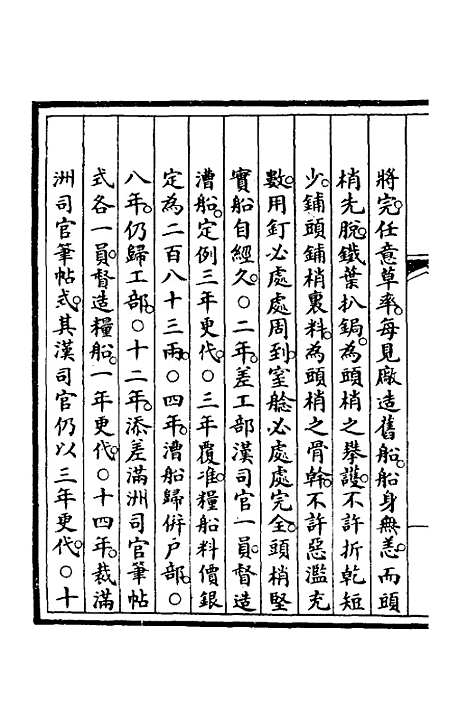 將完。任意草率。每見廠造舊船。船身無恙。而頭
梢先脫。鐵葉扒鋦。為頭梢之拲護。不許折乾短
少。鋪頭鋪梢裏料。為頭梢之骨幹。不許惡濫充
數。用釘必處處周到。室艌必處處完全。頭梢堅
實船自經久。○二年。差工部漢司官一員。督造
漕船。定例三年更代。○三年覆准。糧船料價銀
定為二百八十三兩。○四年。漕船歸併戶部。○
八年。仍歸工部。○十二年。添差滿洲司官筆帖
式各一員。督造糧船。一年更代。○十四年。裁滿
洲司官筆帖式。其漢司官仍以三年更代。○十